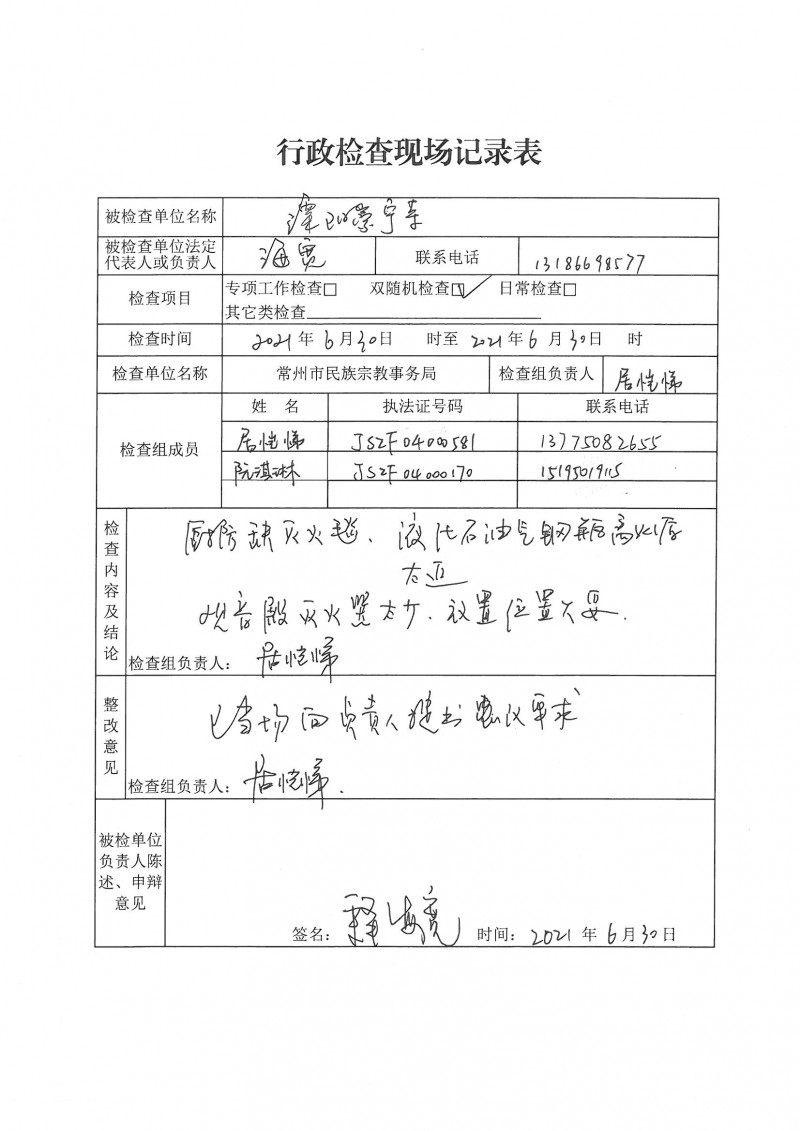 行政检查现场记录表
被检查单位名称
被检查单位法定代表人或负责人 海宽 联系电话 13186698577
检查项目 专项工作检查□ 双随机检查☑ 日常检查□
其它类检查
检查时间 2021年6月30日 时至2021年6月30日 时
检查单位名称 常州市民族宗教事务局 检查组负责人 居恺悌
检查组成员 姓 名 执法证号码 联系电话
居恺悌 JSZF04000581 13775082655
阮淇琳 JSZF04000170 15195019115
检查内容及结论
厨房缺灭火毯、液化石油气钢瓶离火源
太近
观音殿灭火器太少.放置位置不妥.
检查组负责人: 居恺悌
整改意见
已当场向负责人提出 要求
检查组负责人: 居恺悌.
被检单位负责人陈述、申辩意见
签名: 释海宽 时间: 2021年6月30日